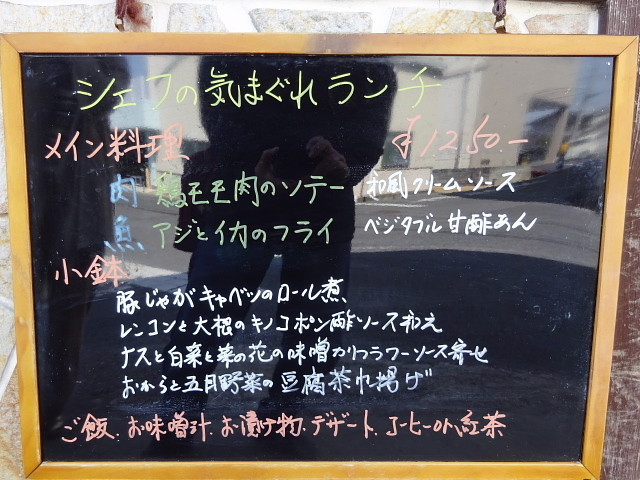 シェフの気まぐれランチ
メイン料理 ¥1250.-
肉 鶏モモ肉のソテー 和風クリームソース
魚 アジとイカのフライ ベジタブル甘酢あん
小鉢
豚じゃがキャベツのロール煮
レンコンと大根のキノコポン酢ソース和え
ナスと白菜と菜の花の味噌カリフラワーソース寄せ
おからと五目野菜の豆腐茶巾揚げ
ご飯.お味噌汁.お漬け物.デザート.コーヒーor紅茶